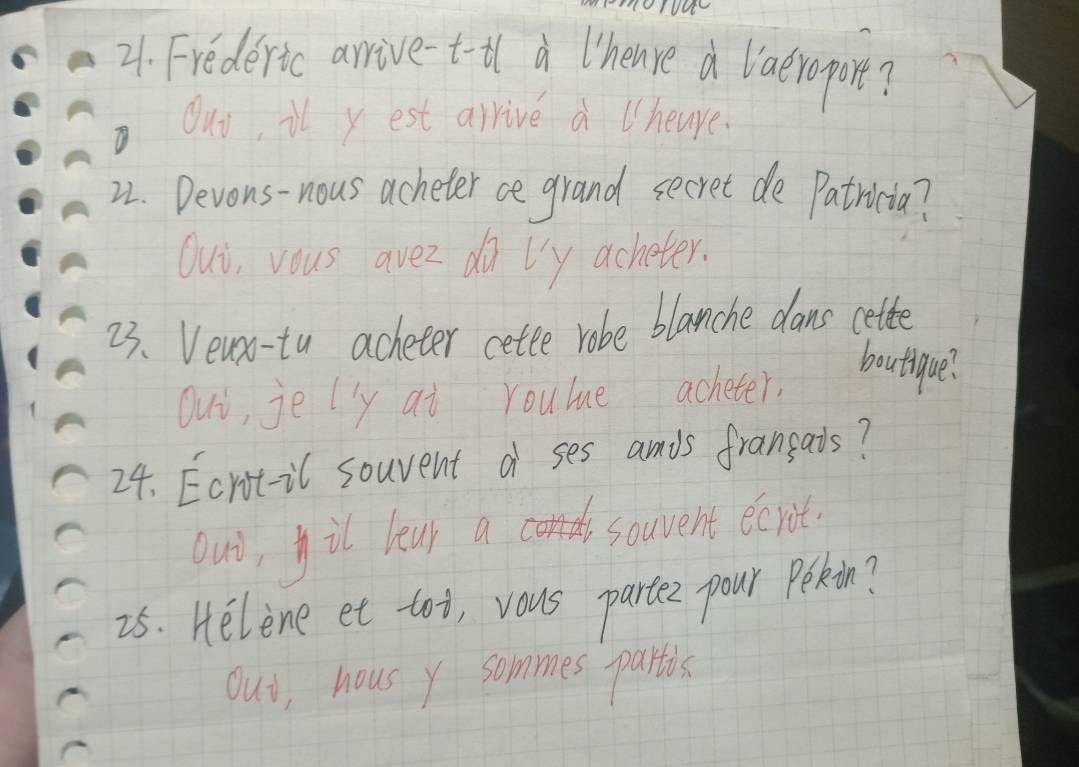 21. Frédéric arrive-t-il à l'heure à l'aéroport?
Oui, il y est arrivé à l'heure.
22. Devons-nous acheter ce grand secret de Patricia?
Oui, vous avez dû l'y acheter.
23. Veux-tu acheter cette robe blanche dans cette
boutique?
Oui, je l'y ai voulue acheter.
24. Écrit-il souvent à ses amis français?
Oui, il leur a souvent écrit.
25. Hélène et toi, vous partez pour Pékin?
Oui, nous y sommes partis